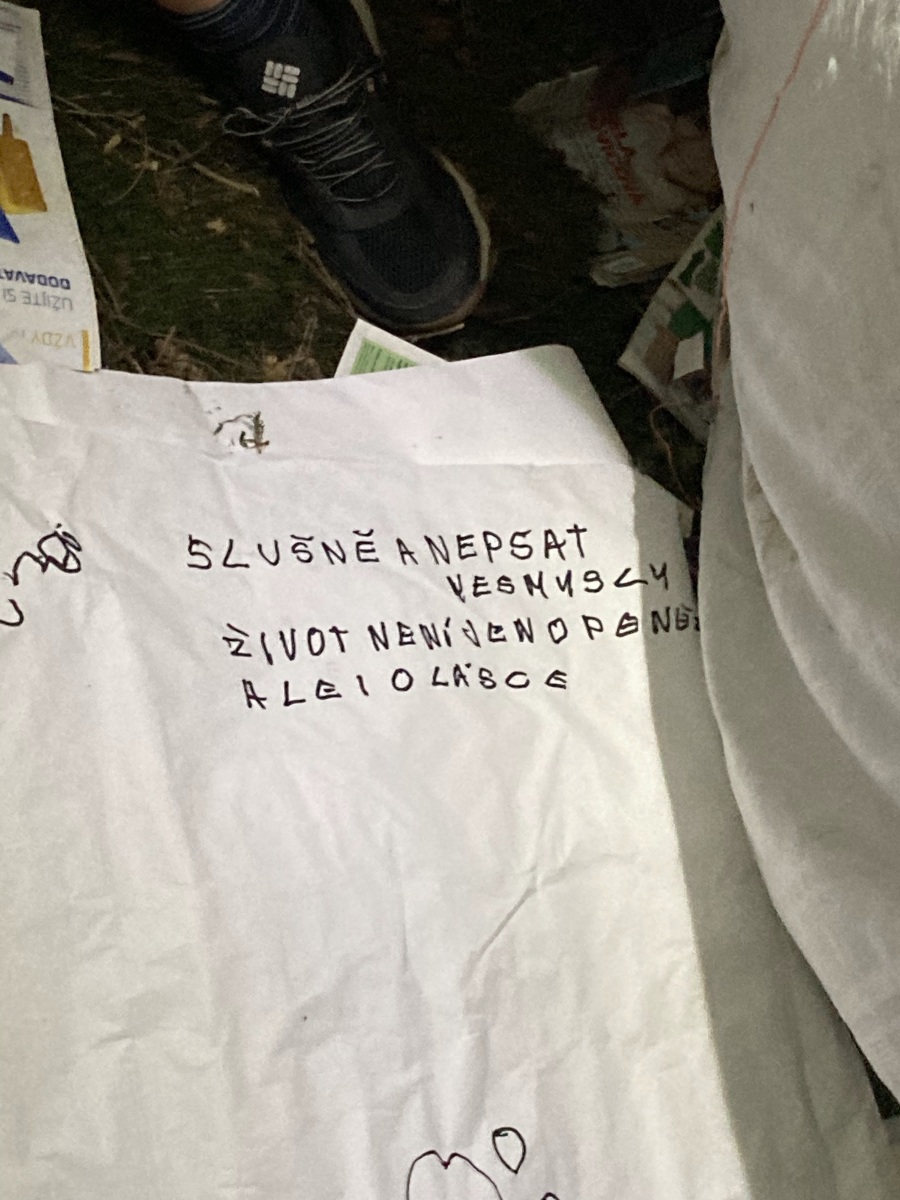 SLUŠNĚ A NEPSAT
VESMYSLY
ŽIVOT NENÍ JEN O PENĚ
ALE I O LÁSCE
VŽDY
UŽIJTE SI
DODAVAT